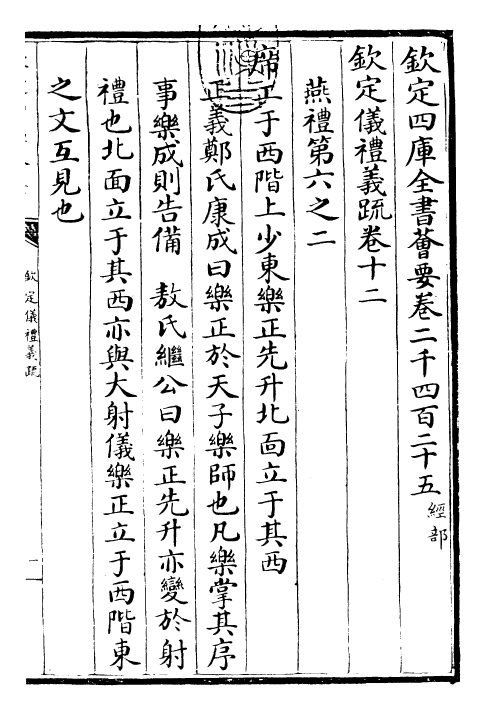 欽定四庫全書薈要卷二千四百二十五 經部
欽定儀禮義疏卷十二
燕禮第六之二
席工于西階上少東樂正先升北面立于其西
正義鄭氏康成曰樂正於天子樂師也凡樂掌其序
事樂成則告備 敖氏繼公曰樂正先升亦變於射
禮也北面立于其西亦與大射儀樂正立于西階東
之文互見也
欽定儀禮義疏